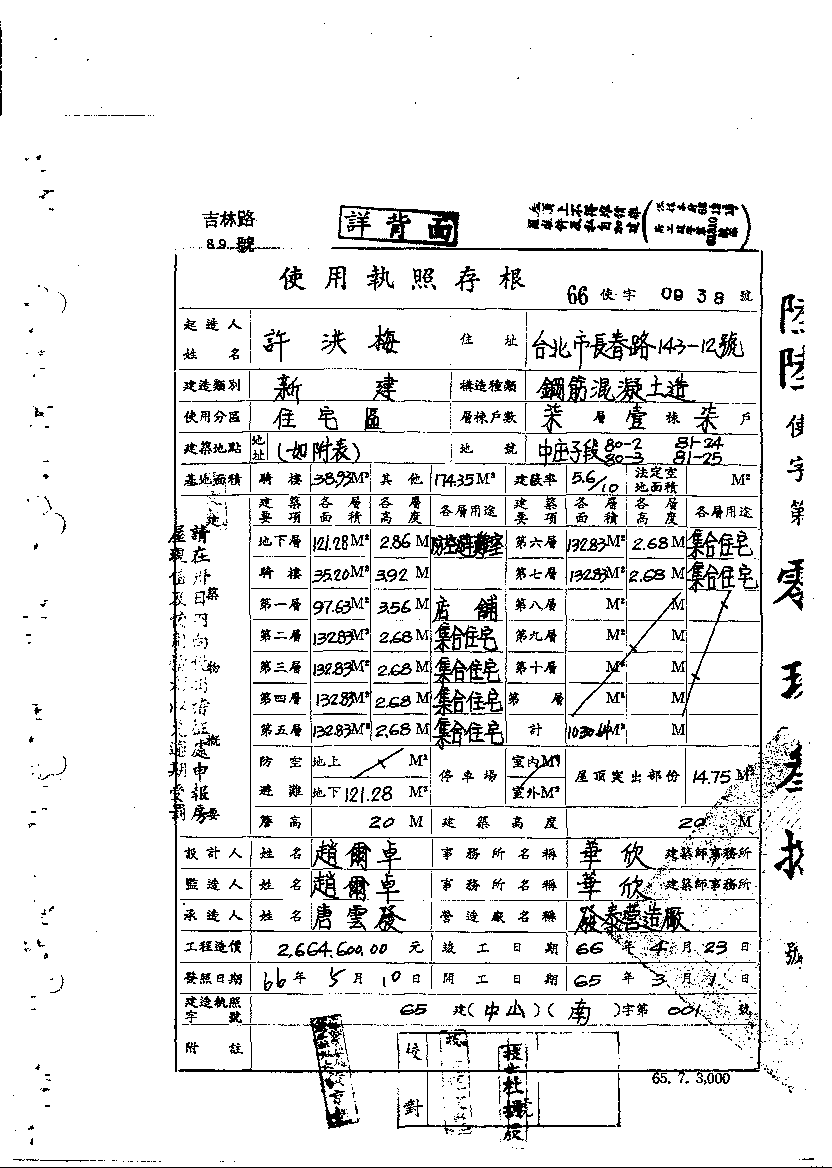 吉林路
89號
詳背面
使用執照存根
66 使字 0938 號
起造人姓名 許洪梅 住址 台北市長春路143-12號
建造類別 新建 構造種類 鋼筋混凝土造
使用分區 住宅區 層棟戶數 柒層壹棟柒戶
建築地點 地址 (如附表) 地號 中庄子段 80-2 81-24
80-3 81-25
基地面積 騎樓 38.93M² 其他 174.35M² 建蔽率 5.6/10 法定空地面積 M²
建築要項 各層面積 各層高度 各層用途 建築要項 各層面積 各層高度 各層用途
地下層 121.28M² 2.86M 防空避難室 第六層 132.83M² 2.68M 集合住宅
騎樓 35.20M² 3.92M 第七層 132.83M² 2.68M 集合住宅
第一層 97.63M² 3.56M 店舖 第八層 M² M
第二層 132.83M² 2.68M 集合住宅 第九層 M² M
第三層 132.83M² 2.68M 集合住宅 第十層 M² M
第四層 132.83M² 2.68M 集合住宅 第 層 M² M
第五層 132.83M² 2.68M 集合住宅 計 1030.64M² M
建築物概要
防空避難 地上 M² 停車場 室內M² 屋頂突出部份 14.75M²
地下 121.28M² 室外M²
簷高 20M 建築高度 20M
設計人 姓名 趙爾卓 事務所名稱 華欣 建築師事務所
監造人 姓名 趙爾卓 事務所名稱 華欣 建築師事務所
承造人 姓名 唐雲發 營造廠名稱 發泰營造廠
工程造價 2,664,600.00 元 竣工日期 66年4月23日
發照日期 66年5月10日 開工日期 65年3月1日
建造執照字號 65建(中山)(南)字第001號
附註
校對
65. 7. 3,000
陸陸使字第零玖叁捌號